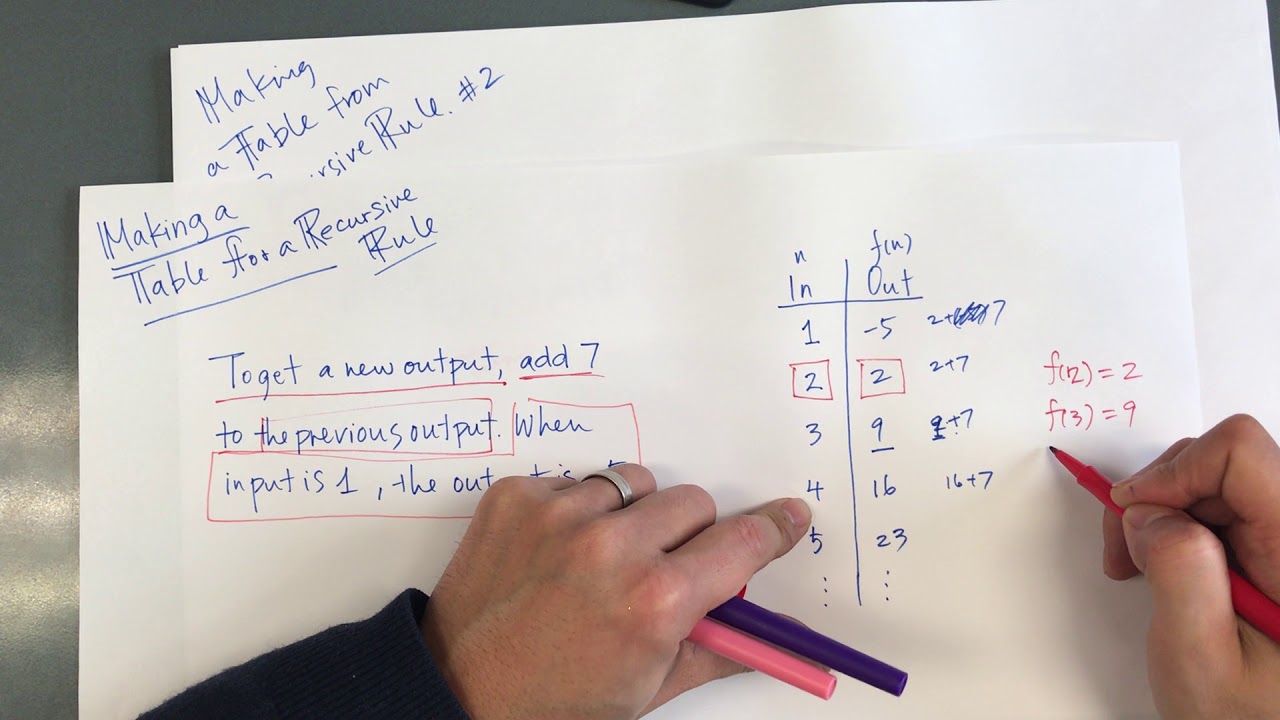 Making
a Table from
Rule. #2
Making a
Table for a Recursive
Rule
To get a new output, add 7
to the previous output. When
input is 1, the out
n f(n)
In Out
1 -5 2+ 7
2 2 2+7
3 9 9+7
4 16 16+7
5 23
⋮ ⋮
f(2) = 2
f(3) = 9